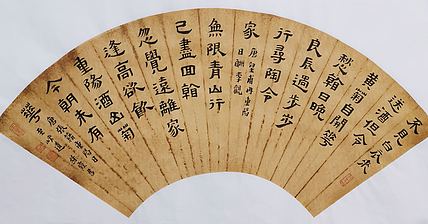 不見白衣來
送酒但令
黃菊自開華
愁日晚
良辰過步步
行尋陶令
家
唐皇甫冉重陽
日酬李觀
無限青山行
已盡回
忽覺遠離家
逢高欲飲
重陽酒山菊
今朝未有
華
唐張籍重陽日
至峽道